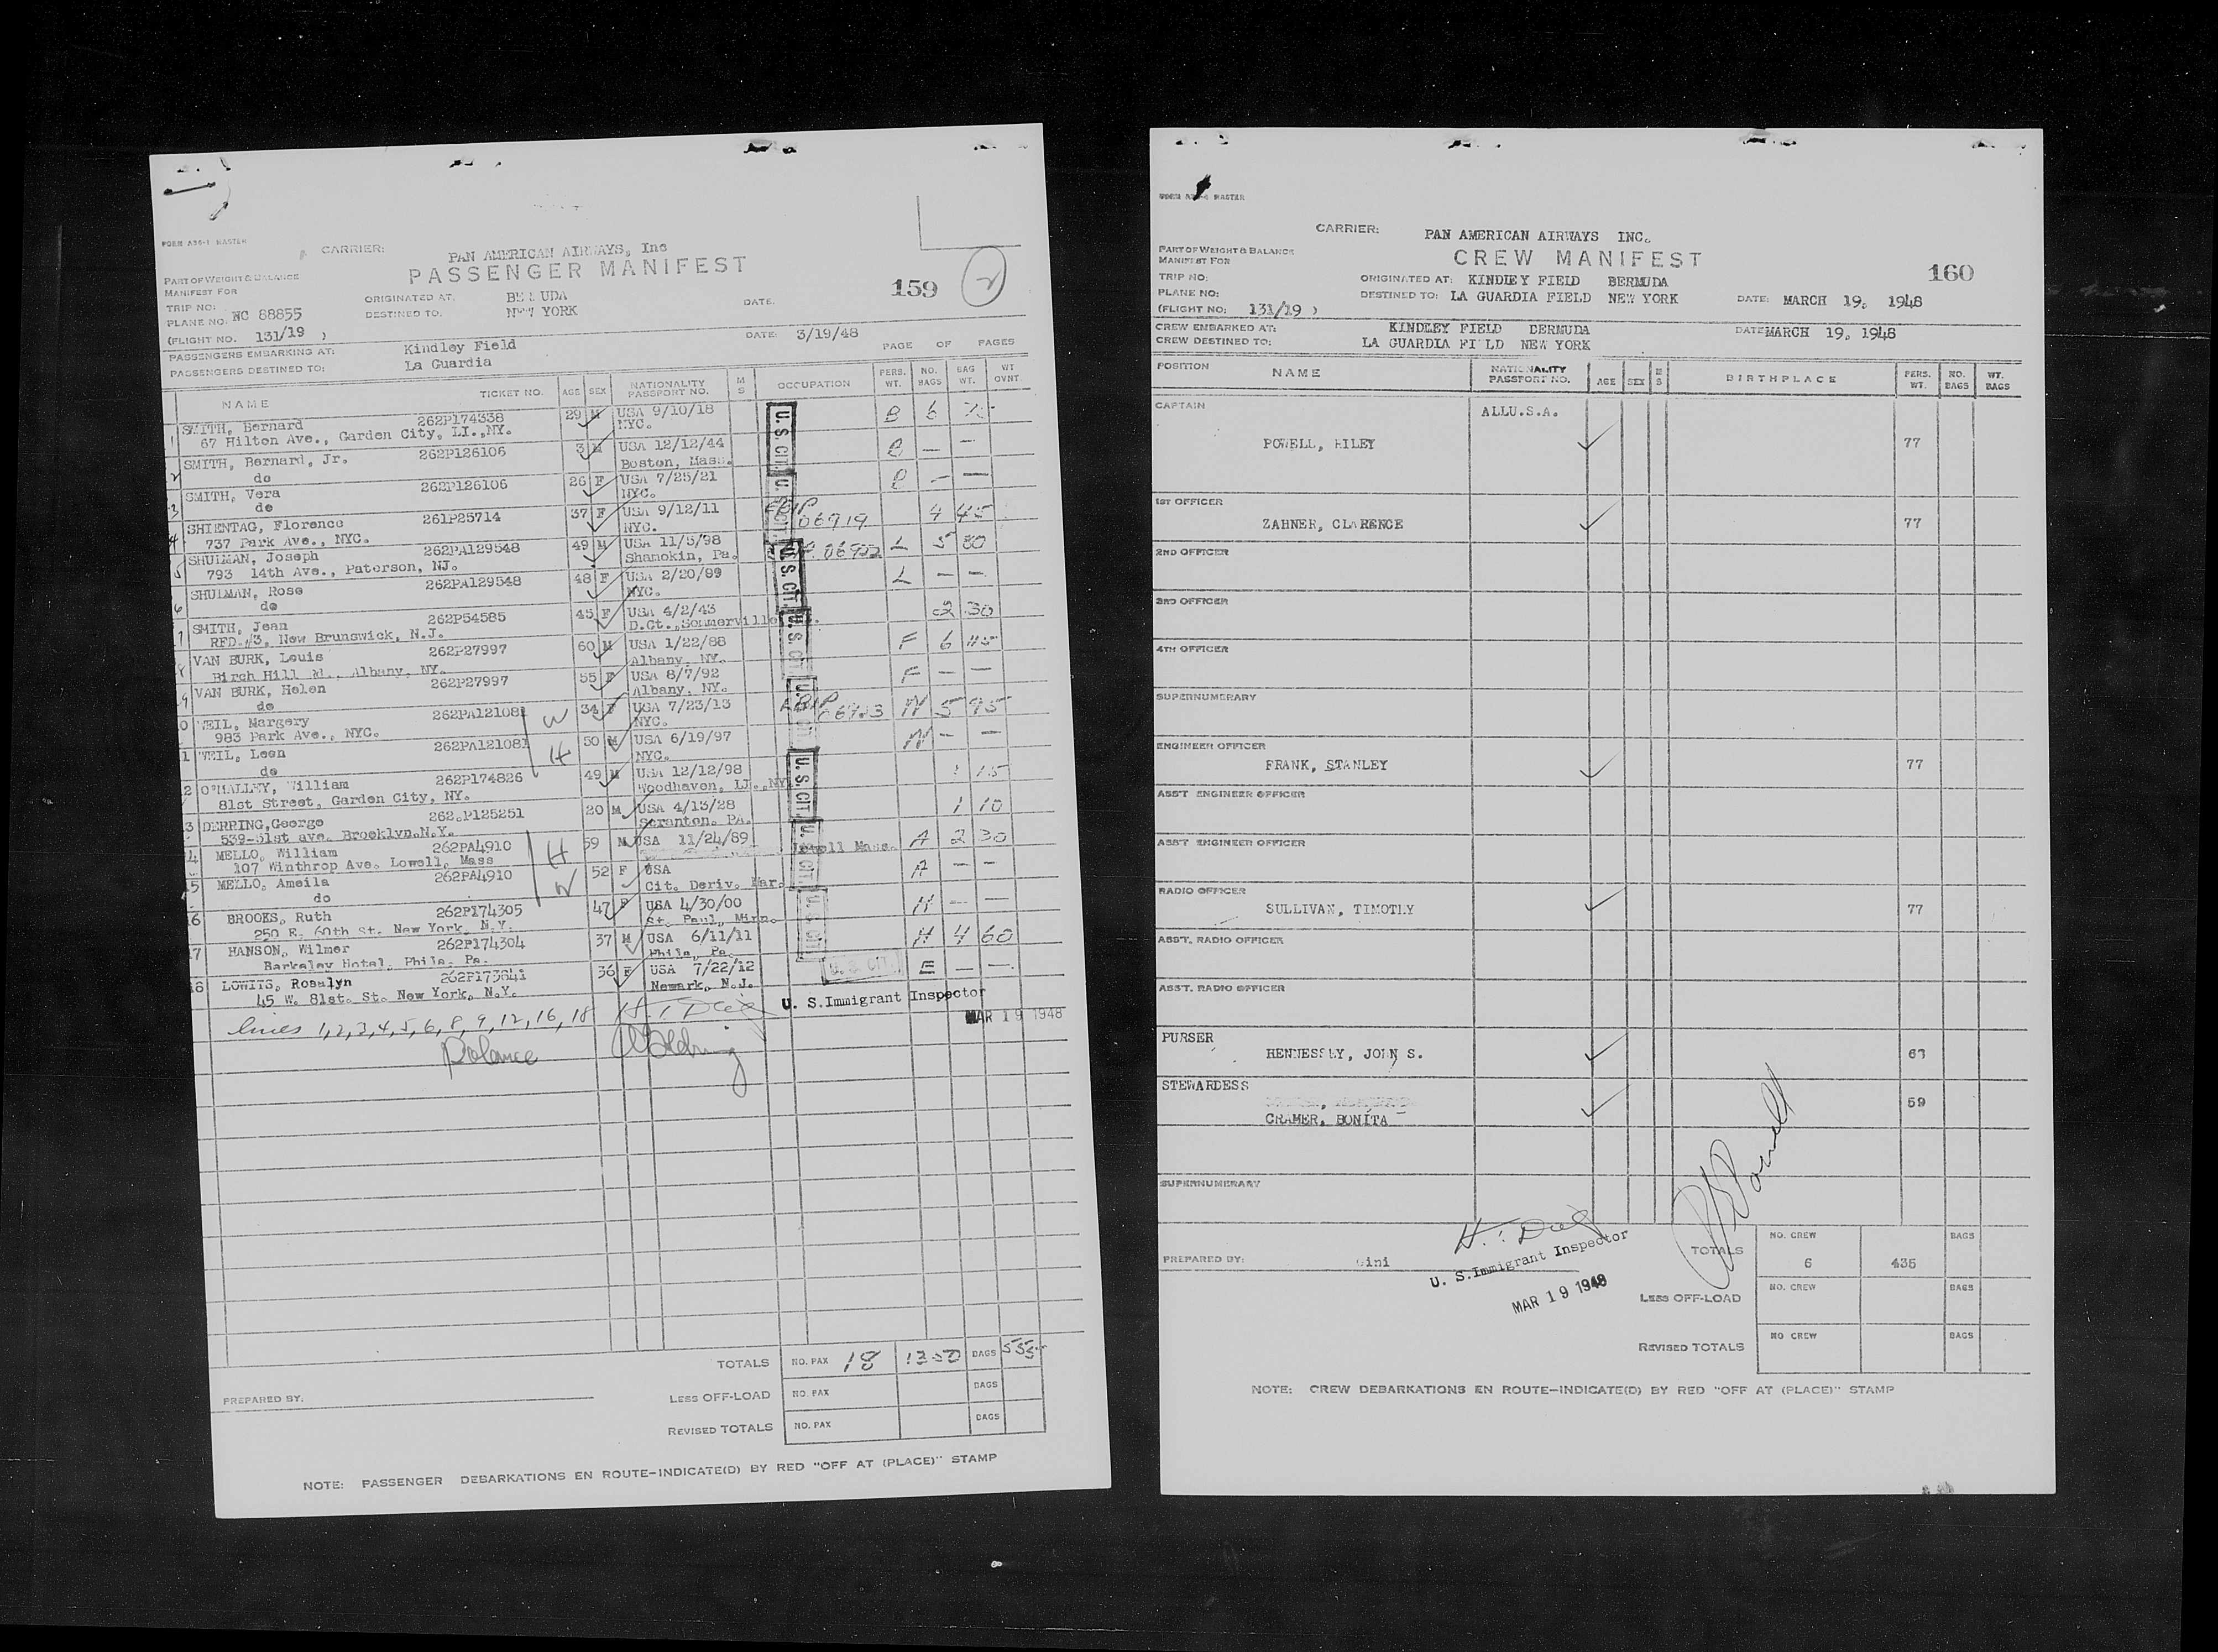 FORM A35-1 MASTER
CARRIER: PAN AMERICAN AIRWAYS, Inc
PASSENGER MANIFEST
PART OF WEIGHT & BALANCE
MANIFEST FOR
159 2
TRIP NO: ORIGINATED AT. DATE.
PLANE NO. NC 88855 DESTINED TO. NEW YORK
(FLIGHT NO. 131/19 )
PASSENGERS EMBARKING AT: Kindley Field DATE: 3/19/48 PAGE OF PAGES
PASSENGERS DESTINED TO: La Guardia
NAME TICKET NO. AGE SEX NATIONALITY PASSPORT NO. M S OCCUPATION PERS. WT. NO. BAGS BAG WT. WT OVNT
1 SMITH, Bernard 262P174338 29 M USA 9/10/18 B 6
67 Hilton Ave., Garden City, LI.,NY. NYC.
2 SMITH, Bernard, Jr. 262P126106 3 M USA 12/12/44 B — —
do Boston, Mass.
3 SMITH, Vera 262P126106 26 F USA 7/25/21 B — —
do NYC.
4 SHIENTAG, Florence 261P25714 37 F USA 9/12/11 06919 4 45
737 Park Ave., NYC. NYC.
5 SHULMAN, Joseph 262PA129548 49 M USA 11/5/98 06922 L 5 80
793 14th Ave., Paterson, NJ. Shamokin, Pa.
6 SHULMAN, Rose 262PA129548 48 F USA 2/20/99 L — —
do NYC.
7 SMITH, Jean 262P54585 45 F USA 4/2/43 2 30
RFD #3, New Brunswick, N.J. D.Ct., Sommerville
8 VAN BURK, Louis 262P27997 60 M USA 1/22/88 F 6
Birch Hill Rd., Albany, NY. Albany, NY.
9 VAN BURK, Helen 262P27997 55 F USA 8/7/92 F — —
do Albany, NY.
10 WEIL, Margery 262PA121081 W 34 F USA 7/23/13 06923 N 5 95
983 Park Ave., NYC. NYC.
11 WEIL, Leon 262PA121081 H 50 M USA 6/19/97 N — —
do NYC.
12 O'MALLEY, William 262P174826 49 M USA 12/12/98 1 15
81st Street, Garden City, NY. Woodhaven, LI.,NY
13 DERRING,George 262.P125251 20 M USA 4/13/28 1 10
539-51st ave. Brooklyn.N.Y. Scranton. PA.
14 MELLO, William 262PA4910 H 59 M USA 11/24/89 Lowell Mass. A 2 30
107 Winthrop Ave. Lowell, Mass
15 MELLO, Ameila 262PA4910 W 52 F USA A — —
do Cit. Deriv. Mar.
16 BROOKS, Ruth 262P174305 47 F USA 4/30/00 H — —
250 E. 60th St. New York, N.Y. St. Paul, Minn.
17 HANSON, Wilmer 262P174304 37 M USA 6/11/11 H 4 60
Barkeley Hotel, Phila. Pa. Phila, Pa.
18 LOWITS, Rosalyn 262P173841 36 F USA 7/22/12 E — —
45 W. 81st. St. New York, N.Y. Newark, N.J.
U. S. CIT.
U. S.Immigrant Inspector
lines 1,2,3,4,5,6,8,9,12,16,18
MAR 19 1948
Balance
TOTALS NO. PAX 18 1350 BAGS 555
PREPARED BY. LESS OFF-LOAD NO. PAX BAGS
REVISED TOTALS NO. PAX BAGS
NOTE: PASSENGER DEBARKATIONS EN ROUTE—INDICATE(D) BY RED "OFF AT (PLACE)" STAMP
MASTER
CARRIER: PAN AMERICAN AIRWAYS INC.
PART OF WEIGHT & BALANCE
MANIFEST FOR
CREW MANIFEST
160
TRIP NO: ORIGINATED AT: KINDLEY FIELD BERMUDA
PLANE NO: DESTINED TO: LA GUARDIA FIELD NEW YORK DATE: MARCH 19, 1948
(FLIGHT NO: 131/19 )
CREW EMBARKED AT: KINDLEY FIELD BERMUDA DATE MARCH 19, 1948
CREW DESTINED TO: LA GUARDIA FIELD NEW YORK
POSITION NAME NATIONALITY PASSPORT NO. AGE SEX M S BIRTHPLACE PERS. WT. NO. BAGS WT. BAGS
CAPTAIN ALLU.S.A.
POWELL, RILEY 77
1ST OFFICER
ZAHNER, CLARENCE 77
2ND OFFICER
3RD OFFICER
4TH OFFICER
SUPERNUMERARY
ENGINEER OFFICER
FRANK, STANLEY 77
ASS'T ENGINEER OFFICER
ASS'T ENGINEER OFFICER
RADIO OFFICER
SULLIVAN, TIMOTHY 77
ASS'T. RADIO OFFICER
ASS'T. RADIO OFFICER
PURSER
HENNESSEY, JOHN S.
STEWARDESS
CRAMER, BONITA 59
SUPERNUMERARY
PREPARED BY:
U. S.Immigrant Inspector
MAR 19 1948
TOTALS NO. CREW 6 435 BAGS
LESS OFF-LOAD NO. CREW BAGS
REVISED TOTALS NO CREW BAGS
NOTE: CREW DEBARKATIONS EN ROUTE—INDICATE(D) BY RED "OFF AT (PLACE)" STAMP